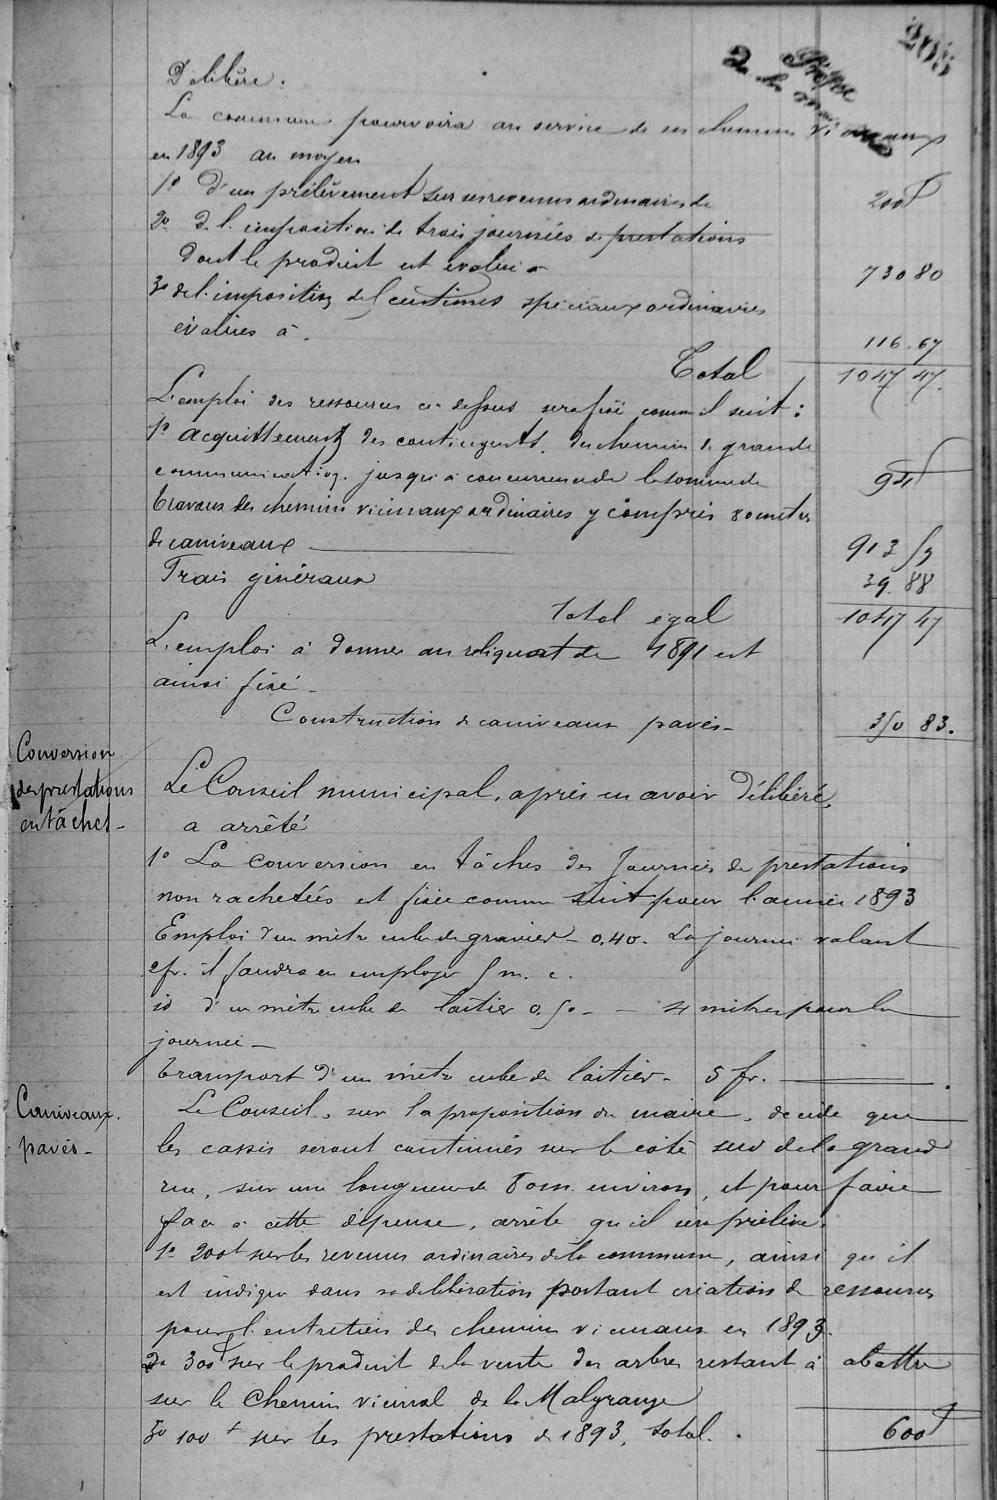 205
Délibère.
La commune pourvoira au service de ses chemins vicinaux
en 1893 au moyen
1º D'un prélèvement sur ses revenus ordinaires de 200f
2º De l'imposition de trois journées de prestations
dont le produit est évalué à 730 80
3º de l'imposition de 5 centimes spéciaux ordinaires
évalués à. 116.67
Total 1047 47.
L'emploi des ressources ci-dessus sera fixé comme il suit :
1º Acquittement des contingents des chemins de grande
communication jusqu'à concurrence de la somme de 94f
Travaux des chemins vicinaux ordinaires y compris 80 mètres
de caniveaux 913 59
Frais généraux 39.88
Total égal 1047 47
L'emploi à donner au reliquat de 1891 est
ainsi fixé -
Construction de caniveaux pavés - 350 83.
Conversion
des prestations
en tâches -
Le Conseil municipal, après en avoir délibéré,
a arrêté
1º La conversion en tâches des Journées de prestations
non rachetées et fixée comme suit pour l'année 1893
Emploi d'un mètre cube de gravier - 0,40. La journée valant
2fr. il faudra en employer 5 m. c.
id d'un mètre cube de laitier 0.50 - - 4 mètres pour la
journée -
Transport d'un mètre cube de laitier - 5 fr.
Caniveaux
pavés -
Le Conseil, sur la proposition du maire, décide que
les cassis seront continués sur le côté sud de la grande
rue, sur une longueur de 80m. environ, et pour faire
face à cette dépense, arrête qu'il sera prélevé.
1º 200f sur les revenus ordinaires de la commune, ainsi qu'il
est indiqué dans sa délibération portant création de ressources
pour l'entretien des chemins vicinaux en 1893.
2º 300f sur le produit de la vente des arbres restant à abattre
sur le Chemin vicinal de la Malgrange
3º 100f sur les prestations de 1893, total. 600f